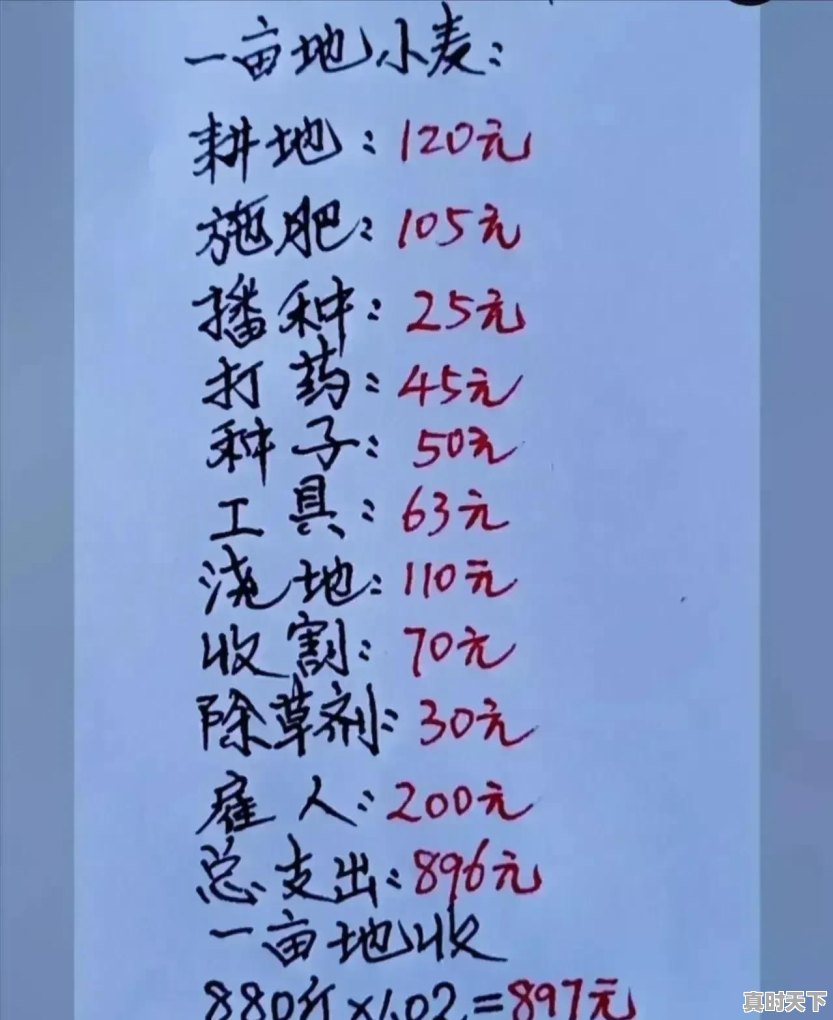 一亩地小麦：
耕地：120元
施肥：105元
播种：25元
打药：45元
种子：50元
工具：63元
浇地：110元
收割：70元
除草剂：30元
雇人：200元
总支出：896元
一亩地收
880斤×1.02=897元
真时天下